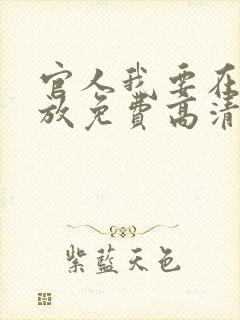 官人我要在
放免费高清
紫蓝天色